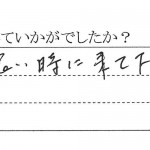 ていかがでしたか？
い時に来て下